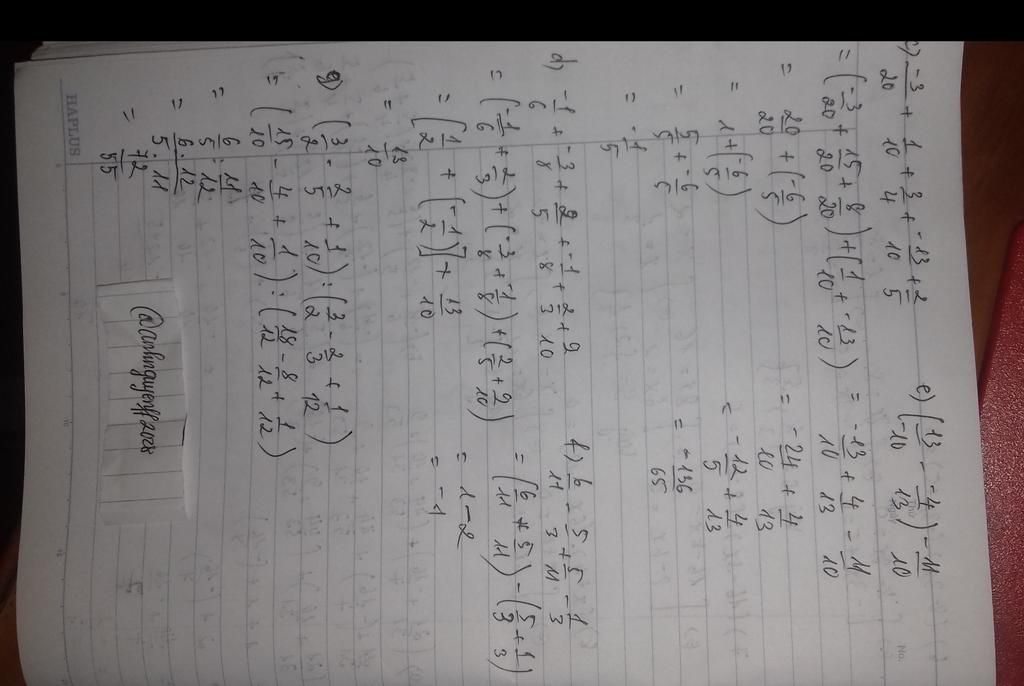 c) -3/20 + 1/10 + 3/4 + -13/10 + 2/5
= (-3/20 + 15/20 + 8/20) + (1/10 + -13/10)
= 20/20 + (-6/5)
= 1 + (-6/5)
= 5/5 + -6/5
= -1/5
d) -1/6 + -3/8 + 2/5 + -1/8 + 2/3 + 9/10
= (-1/6 + 2/3) + (-3/8 + -1/8) + (2/5 + 9/10)
= [1/2 + (-1/2)] + 13/10
= 13/10
g) (3/2 - 2/5 + 1/10) : (3/2 - 2/3 + 1/12)
= (15/10 - 4/10 + 1/10) : (18/12 - 8/12 + 1/12)
= 6/5 : 11/12
= 6.12/5.11
= 72/55
HAPLUS
No.
e) (13/-10 - -4/13) - 11/10
= -13/10 + 4/13 - 11/10
= -24/10 + 4/13
= -12/5 + 4/13
= -136/65
f) 6/11 - 5/3 + 5/11 - 1/3
= (6/11 + 5/11) - (5/3 + 1/3)
= 1 - 2
= -1